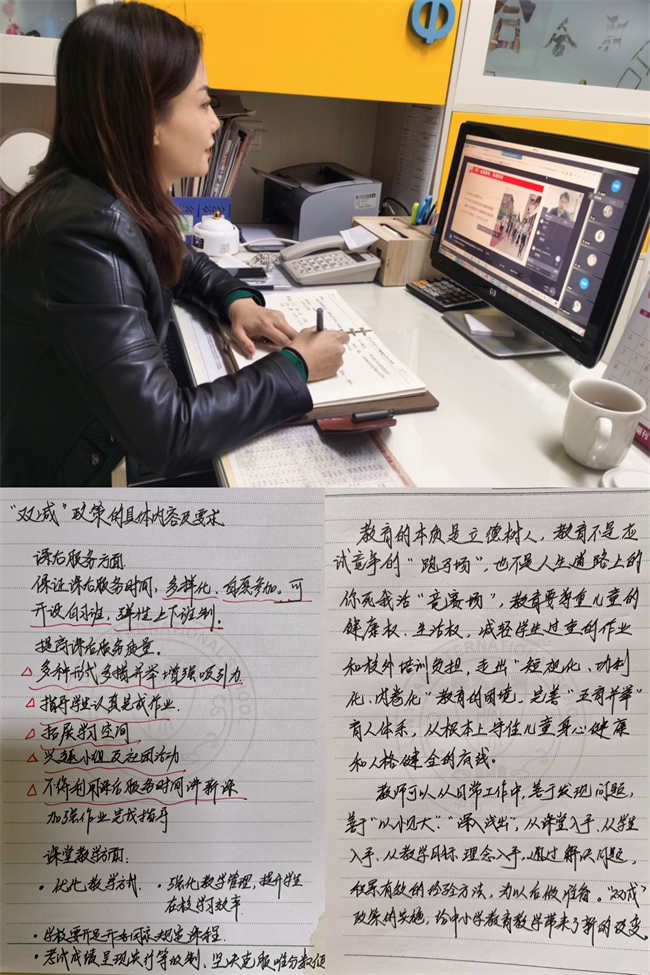 hp
"双减"政策的具体内容及要求
课后服务方面
保证课后服务时间,多样化、自愿参加。可
开设自习班,弹性上下班制。
提高课后服务质量。
△多种形式多措并举增强吸引力
△指导学生认真完成作业.
△拓展学习空间
△兴趣小组及社团活动
△不得利用课后服务时间讲新课
加强作业完成指导
课堂教学方面:
·优化教学方式. ·强化教学管理,提升学生
在校学习效率.
·学校要开足开齐国家规定课程.
·考试成绩呈现实行等级制、坚决克服唯分数倾
教育的本质是立德树人,教育不是应
试竞争的"跑马场",也不是人生道路上的
你死我活"竞赛场",教育要尊重儿童的
健康权、生活权,减轻学生过重的作业
和校外培训负担,走出"短视化、功利
化、内卷化"教育的困境,完善"五育并举"
育人体系,从根本上守住儿童身心健康
和人格健全的底线。
教师可以从日常工作中,善于发现问题,
善于"以小见大"."深入浅出",从课堂入手、从学生
入手、从教学目标、理念入手,通过解决问题,
积累有效的经验方法,为以后做准备。"双减"
政策的实施,给中小学教育教学带来了新的改变。